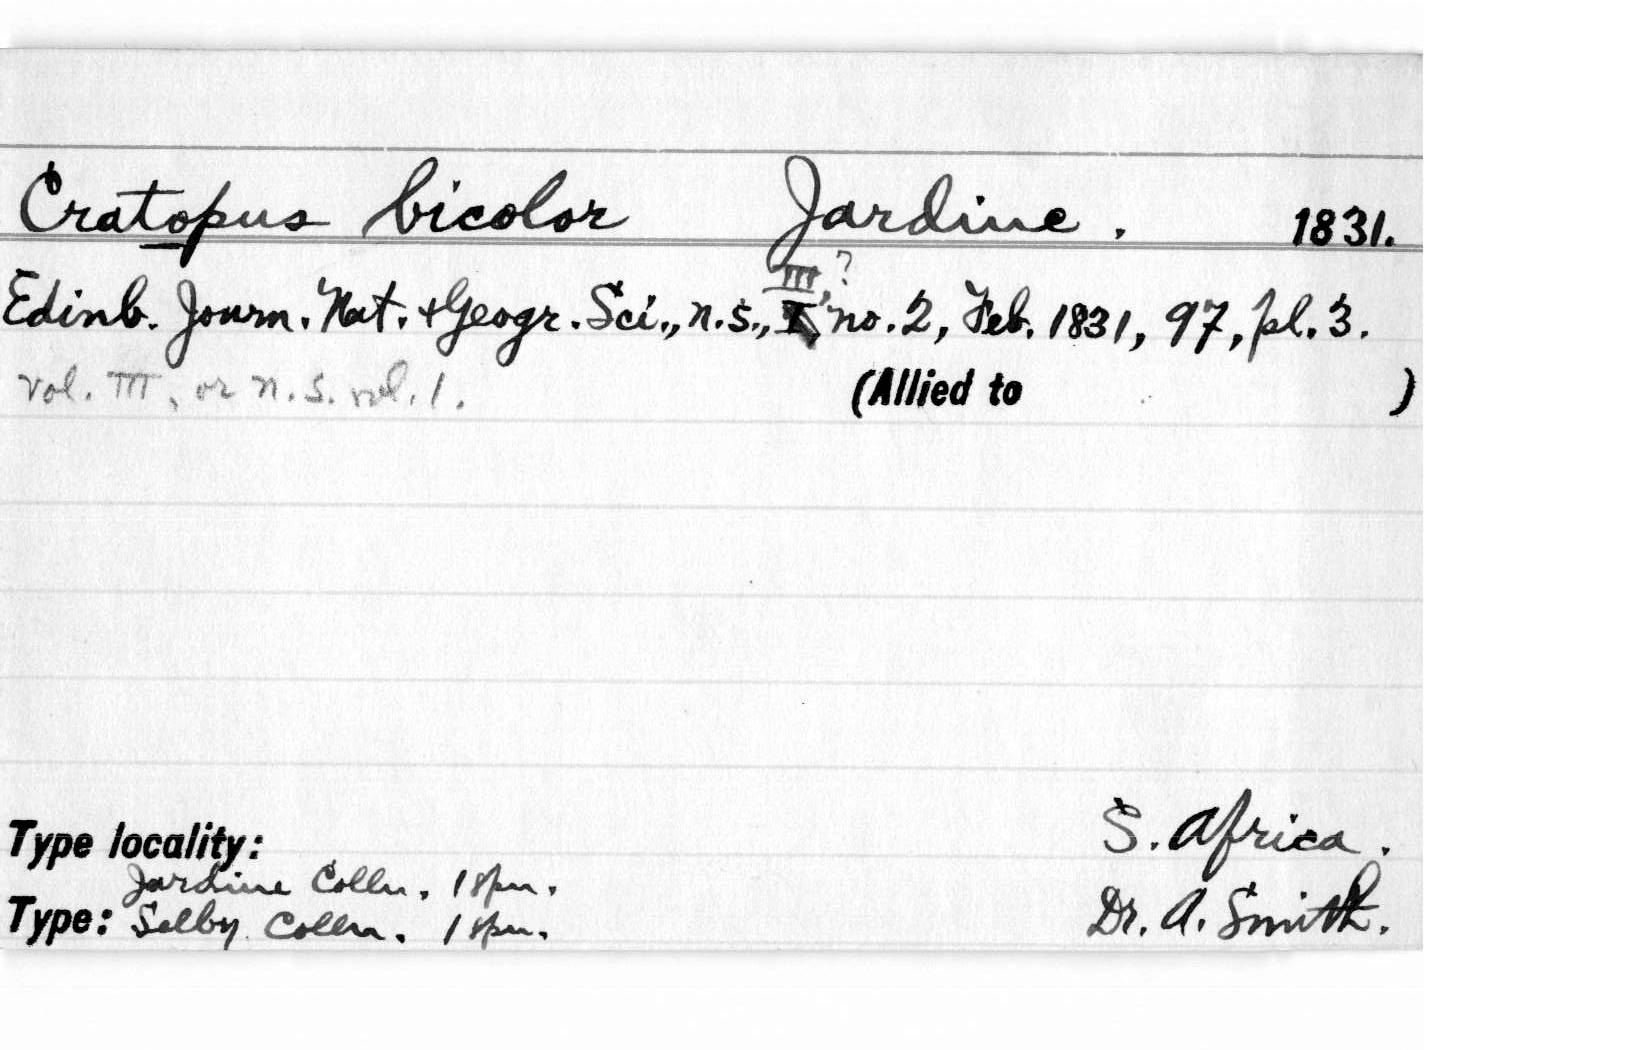 Cratopus bicolor Jardine. 1831.
III,?
Edinb. Journ. Nat. & Geogr. Sci., n.s., I, no. 2, Feb. 1831, 97, pl. 3.
vol. III, or n.s. vol. 1.
(Allied to )
Type locality: S. Africa.
Jardine Colln. 1 spm.
Type: Selby Colln. 1 spm. Dr. A. Smith.